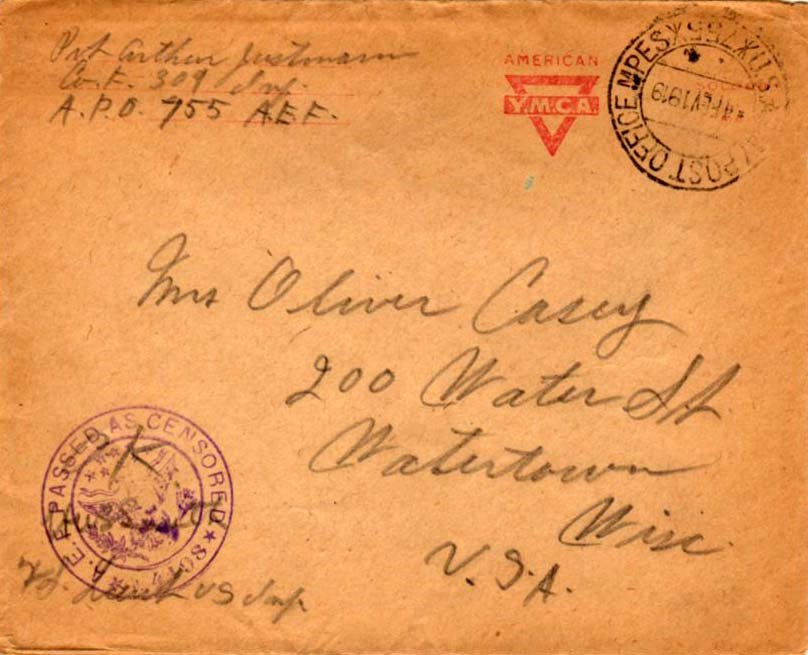 Pvt Arthur Justmann
Co. F. 309 Inf.
A.P.O. 755 A.E.F.
AMERICAN
Y.M.C.A
POST OFFICE MPES
FEV 1919
Mrs Oliver Casey
200 Water St.
Watertown
Wisc.
U.S.A.
A.E.F. PASSED AS CENSORED
OK
US Inf.